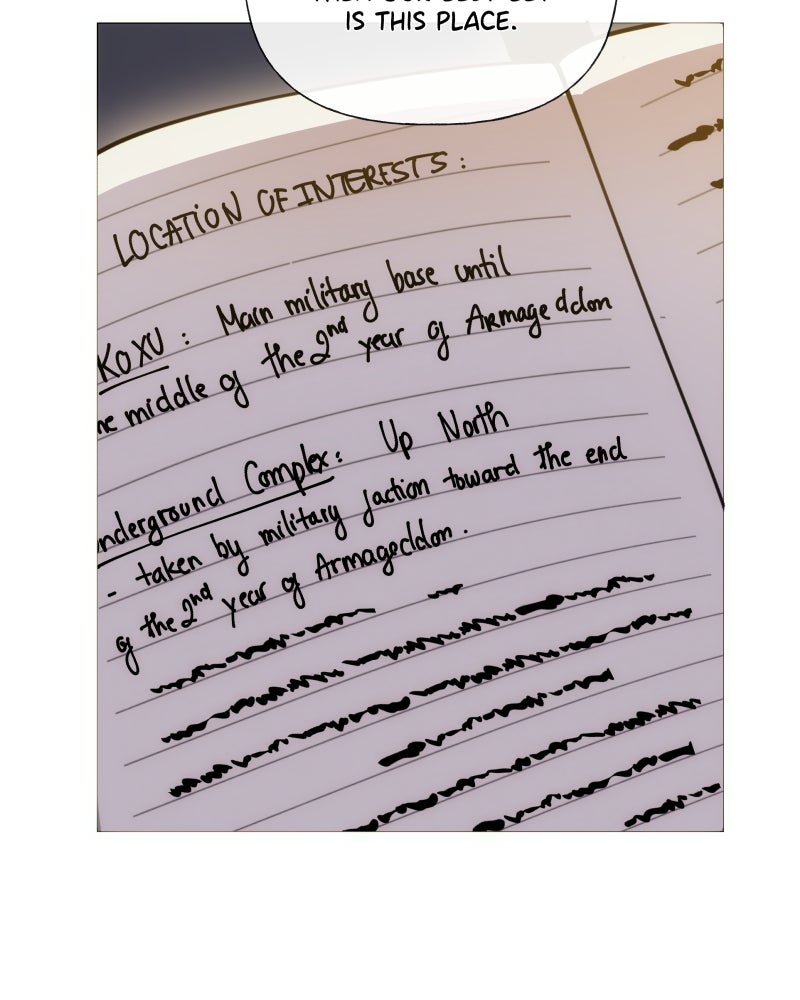 IS THIS PLACE.
LOCATION OF INTERESTS:
KOXU: Main military base until
middle of the 2nd year of Armageddon
Underground Complex: Up North
- taken by military faction toward the end
of the 2nd year of Armageddon.